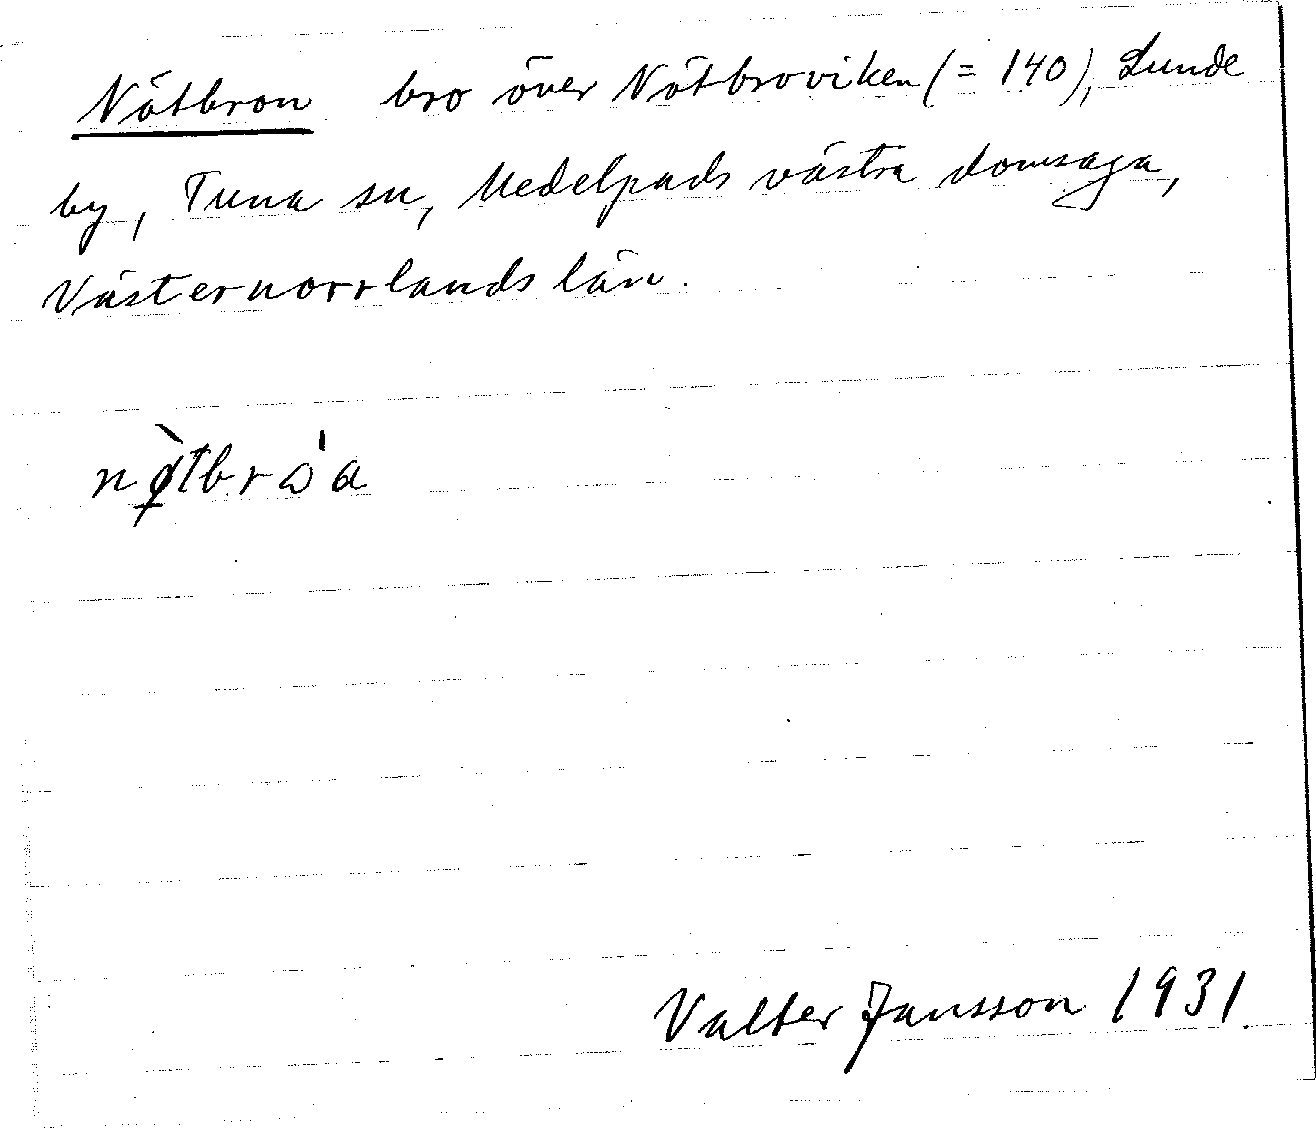 Nötbron bro över Nötbroviken (= 140), Lunde
by, Tuna sn, Medelpads västra domsaga,
Västernorrlands län.
nø̀tbrω̍a
Valter Jansson 1931.